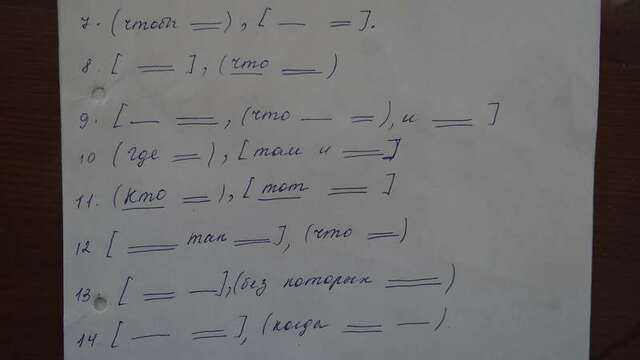 7. (чтобы ══), [ — ═ ].
8. [ ══ ], (что ══ )
9. [ — ══, (что — ═ ), и ══ ]
10 (где ═ ), [ там и ══ ]
11. (кто ═ ), [ тот ══ ]
12 [ ══ так ══ ], (что ═ )
13. [ ═ — ], (без которых ══ )
14 [ — ═ ], (когда ═ — ).